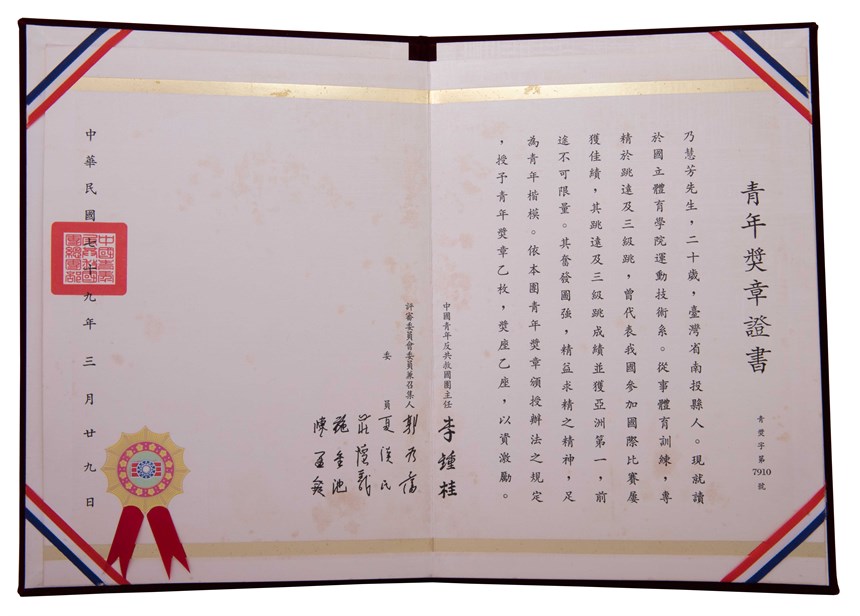 青年獎章證書
青獎字第7910號
乃慧芳先生，二十歲，臺灣省南投縣人。現就讀
於國立體育學院運動技術系。從事體育訓練，專
精於跳遠及三級跳，曾代表我國參加國際比賽屢
獲佳績，其跳遠及三級跳成績並獲亞洲第一，前
途不可限量。其奮發圖強，精益求精之精神，足
為青年楷模。依本團青年獎章頒授辦法之規定
，授予青年獎章乙枚，獎座乙座，以資激勵。
中國青年反共救國團主任 李鍾桂
評審委員會委員兼召集人
委員
中華民國七十九年三月廿九日
中國青年
反共救國
團總團部